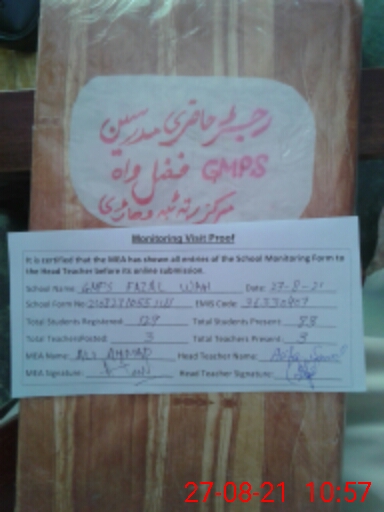 رجسٹر حاضری مدرسین
GMPS فضل واہ
مرکز رتہ ٹبہ وہاڑی
Monitoring Visit Proof
It is certified that the MEA has shown all entries of the School Monitoring Form to
the Head Teacher before its online submission.
School Name: GMPS FAZAL WAH Date: 27-8-21
School Form No: EMIS Code: 36330407
Total Students Registered: 129 Total Students Present: 88
Total Teachers Posted: 3 Total Teachers Present: 3
MEA Name: ALI AHMAD Head Teacher Name:
MEA Signature: Head Teacher Signature:
27-08-21 10:57